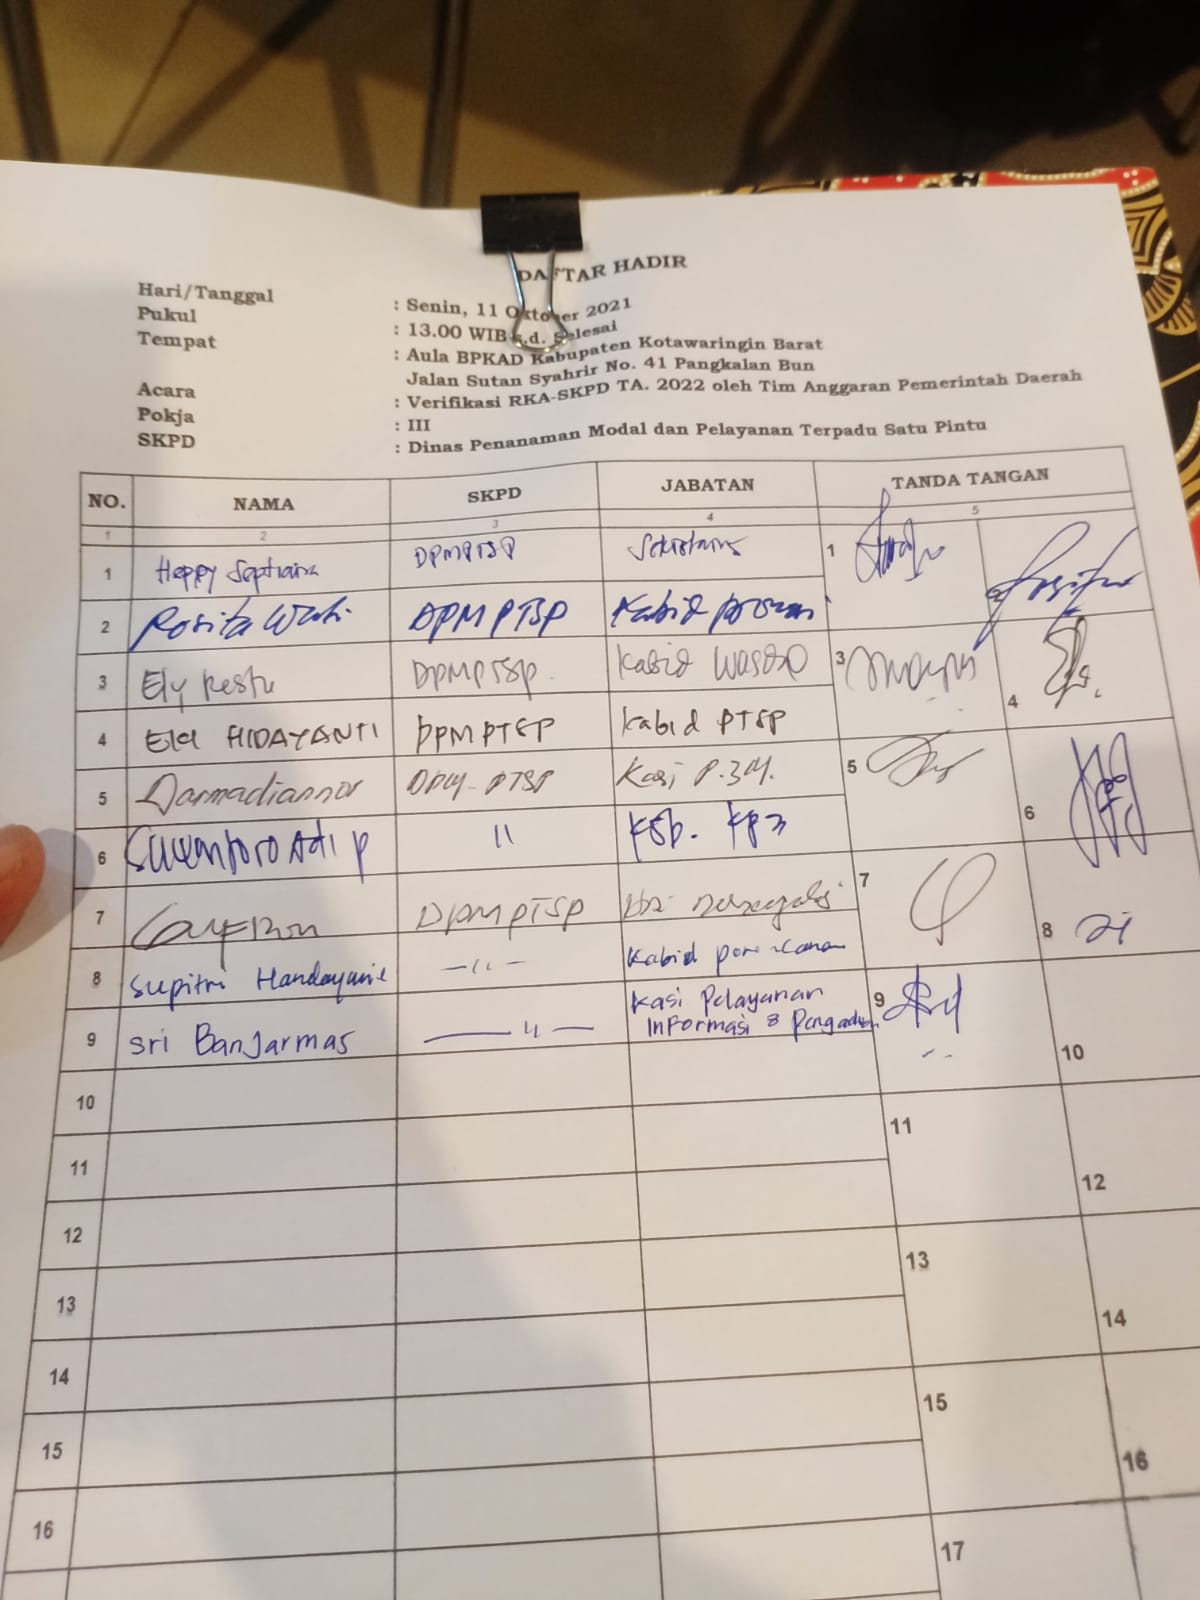 DAFTAR HADIR
Hari/Tanggal : Senin, 11 Oktober 2021
Pukul : 13.00 WIB s.d. Selesai
Tempat : Aula BPKAD Kabupaten Kotawaringin Barat
Jalan Sutan Syahrir No. 41 Pangkalan Bun
Acara : Verifikasi RKA-SKPD TA. 2022 oleh Tim Anggaran Pemerintah Daerah
Pokja : III
SKPD : Dinas Penanaman Modal dan Pelayanan Terpadu Satu Pintu
NO. NAMA SKPD JABATAN TANDA TANGAN
1 2 3 4 5
1 Happy Septiana DPMPTSP Sekretaris 1
2 Rosita Wati DPMPTSP Kabid 2
3 Ely Restu DPMPTSP. Kabid Wasdal 3
4 HIDAYANTI DPMPTSP Kabid PTSP 4
5 Darmadiannor DPM-PTSP Kasi P.3M. 5
6 Adi P 11 KSb. KP3 6
7 DPMPTSP 7
8 Supitri Handayanie -11- Kabid 8
9 Sri Banjarmas -11- Kasi Pelayanan
Informasi & Pengaduan 9
10 10
11 11
12 12
13 13
14 14
15 15
16 16
17